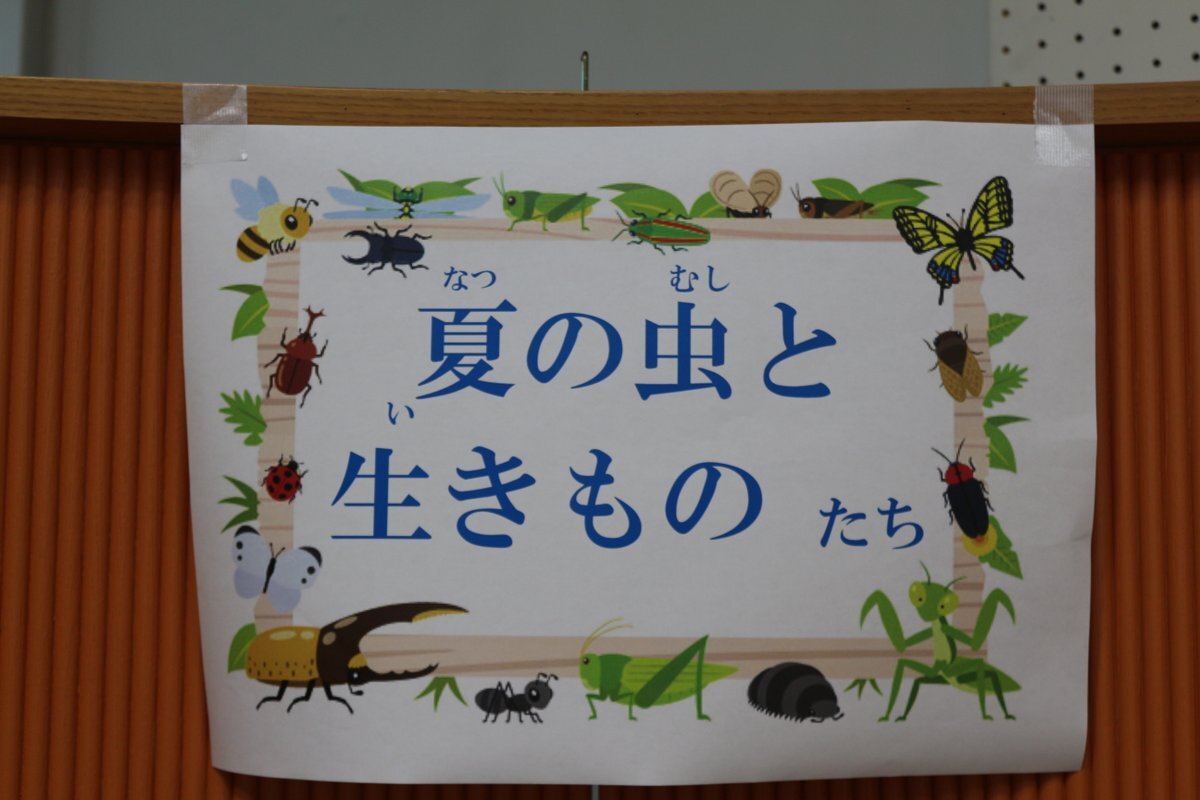 なつ むし
夏の虫と
い
生きもの たち